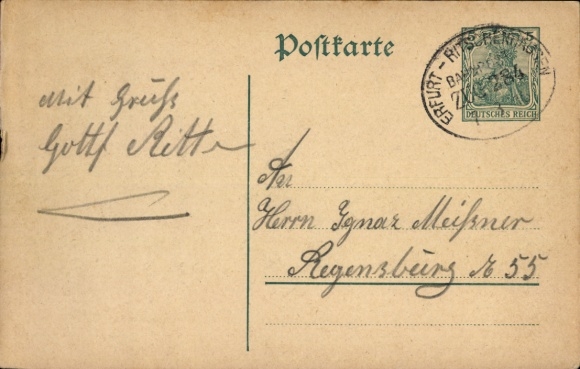 Postkarte
ERFURT - RITSCHENHAUSEN
BAHNPOST
ZUG 284
DEUTSCHES REICH
Mit Gruß
Gottf Ritte
An
Herrn Ignaz Meißner
Regensburg A 55